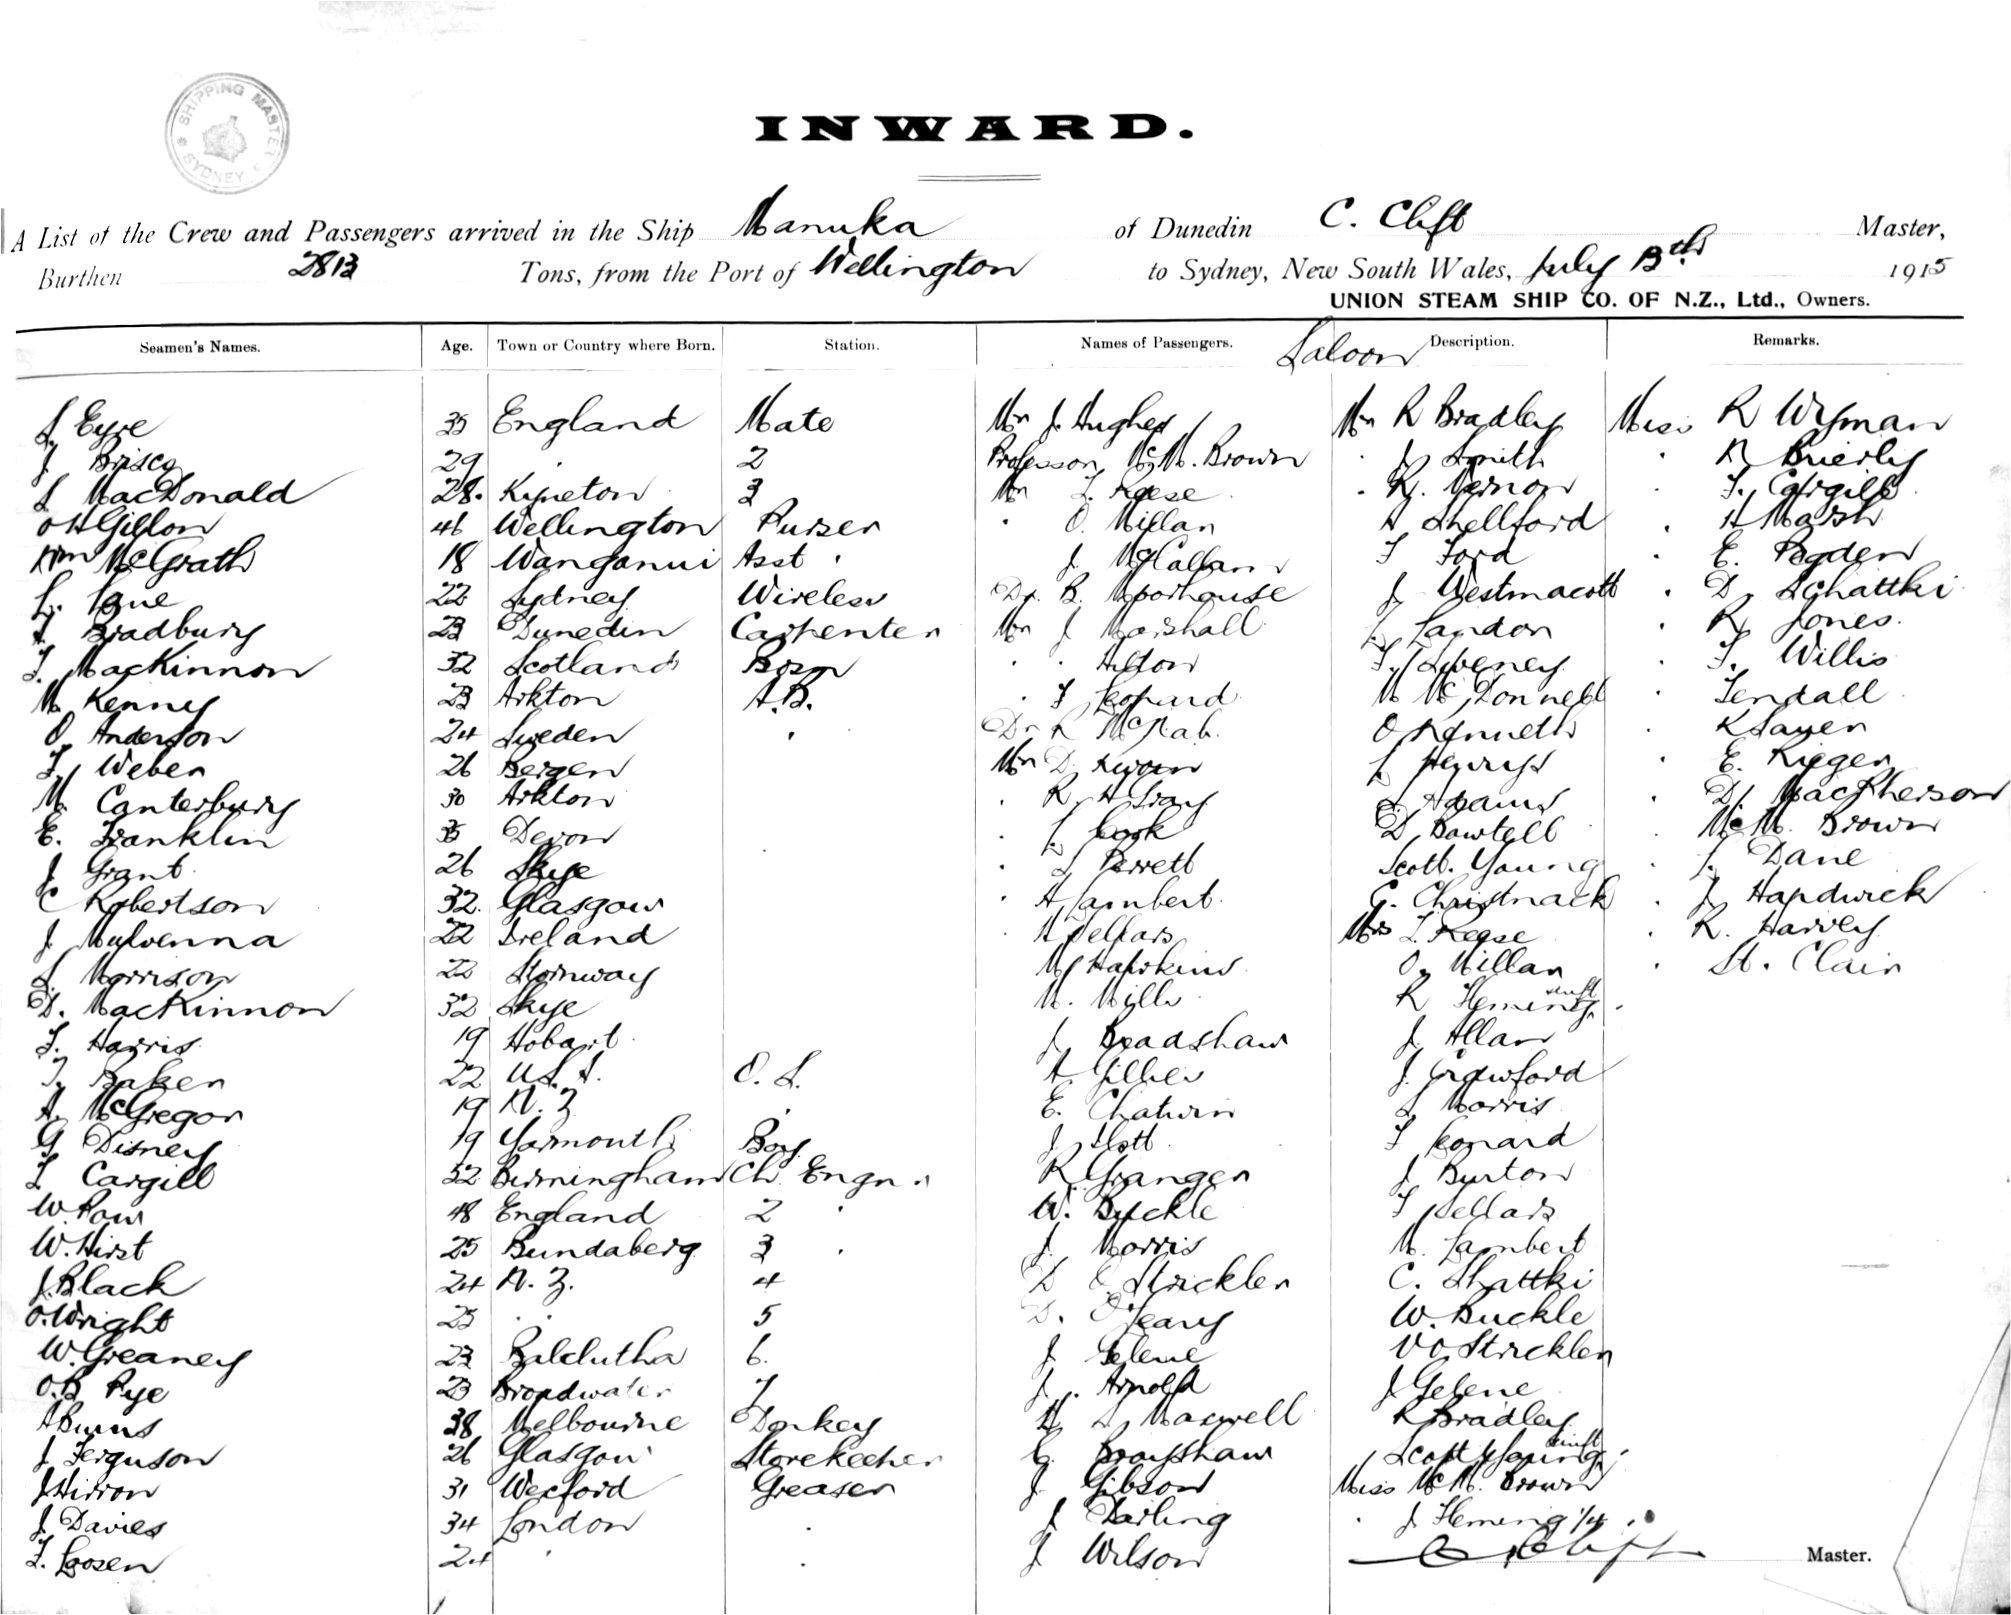 SHIPPING MASTER SYDNEY
INWARD.
A List of the Crew and Passengers arrived in the Ship Manuka of Dunedin C. Clift Master,
Burthen Tons, from the Port of Wellington to Sydney, New South Wales, July 13th 1915
UNION STEAM SHIP CO. OF N.Z., Ltd., Owners.
Seamen's Names. Age. Town or Country where Born. Station. Names of Passengers. Saloon Description. Remarks.
Eyre England Mate Mr J. Hughes Mr R Bradley Miss R Wyman
J Brisco 29 2 Professor McM. Brown J Smith R Brierly
MacDonald 28 Kyneton 3 Mr T. Reese R. Vernon T. Cargill
Gillon 46 Wellington Purser O. Millan A Shellford H Marsh
Wm McGrath 18 Wanganui Asst J McCallum F Ford E. Pegden
L. Lane 22 Sydney Wireless Dr. B. Moorhouse J Westmacott D. Schattki
Bradbury 23 Dunedin Carpenter Mr J Marshall Landon R Jones
MacKinnon 32 Scotland Bosn Hilton Sweney Willis
M Kenny 23 Arkton A.B. Leonard M McDonnell Tendall
O Anderson 24 Sweden Dr R McNab. O Kenneth K Sayer
Weber 26 Bergen Mr D. L E. Rieger
M Canterbury 30 Arkton R H Gray Adams D. MacPherson
E. Franklin Devon L Cook D Bawtell McM. Brown
J Grant 26 Skye Perrett Scott Young Dane
C Robertson 32 Glasgow A Lambert. G. Christmack J Hardwick
J. Mulvenna 22 Ireland Sellars Mrs T. Reese R. Harvey
Morrison 22 Stornway Hawkins O Millan St. Clair
D. MacKinnon 32 Skye M. Mills R Fleming
Harris 19 Hobart J Bradshaw J Allan
Baker 22 U.S.A. O. S. A Gillies J. Crawford
A McGregor 19 N.Z. E. Chatwin Morris
G Disney 19 Yarmouth Boy J Leonard
Cargill 52 Birmingham Ch. Engnr R Granger J Burton
W Paw 48 England 2 W. Buckle Sellars
W. Hirst 25 Bundaberg 3 J. Morris M. Lambert
J. Black 24 N.Z. 4 D Strickler C. Shattki
O. Wright 25 5 D. W. Buckle
W. Greaney 23 Balclutha 6. J Gelene Strickler
O.B Pye 23 Broadwater 7 J. Arnold J Gelene
A Burns 38 Melbourne Donkey Maxwell R Bradley
J Ferguson 26 Glasgow Storekeeper G. Brayshaw Scott Young
J Hirron 31 Wexford Greaser J. Gibson Miss McM. Brown
J Davies 34 London J Darling J Fleming 1/4
Loosen 24 J Wilson C Clift Master.